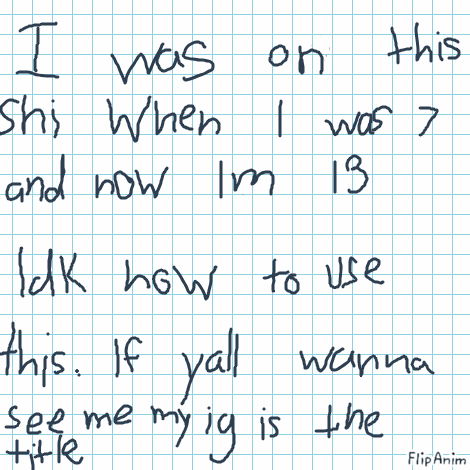 I was on this
Shi When I was 7
and now Im 13
Idk how to use
this. If yall wanna
see me my ig is the
title
FlipAnim